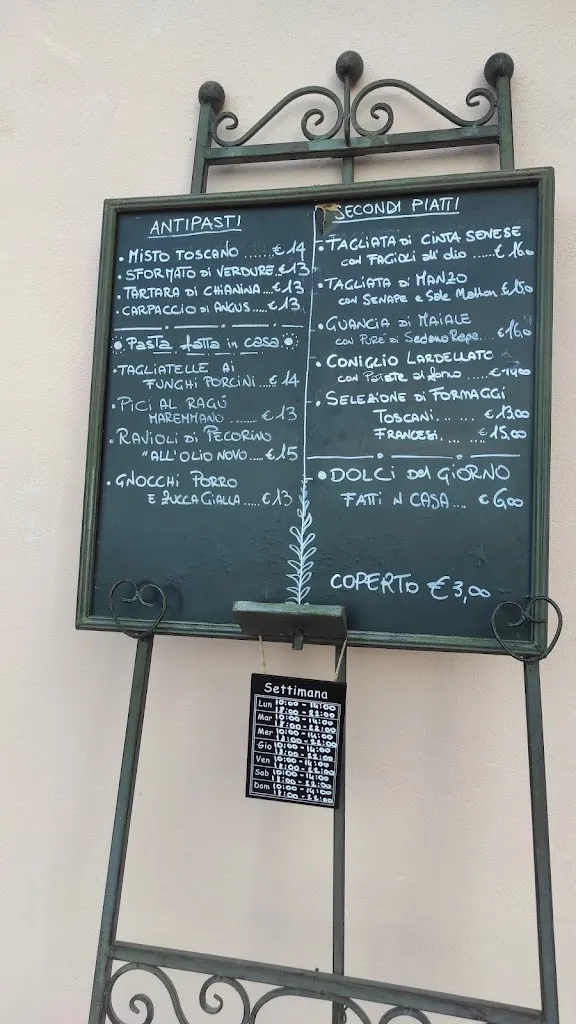 ANTIPASTI
• MISTO TOSCANO ...... €14
• SFORMATO DI VERDURE..€13
• TARTARA DI CHIANINA....€13
• CARPACCIO DI ANGUS.....€13
Pasta fatta in casa
• TAGLIATELLE AI
FUNGHI PORCINI...€14
• PICI AL RAGÚ
MAREMMANO ...... €13
• RAVIOLI DI PECORINO
"ALL'OLIO NOVO....€15
• GNOCCHI PORRO
E ZUCCA GIALLA.....€13
SECONDI PIATTI
• TAGLIATA DI CINTA SENESE
CON FAGIOLI all' olio .....€16,00
• TAGLIATA DI MANZO
CON SENAPE e Sale Maldon.€15,0
• GUANCIA DI MAIALE
CON PURÈ DI Sedano Rapa....€16,0
• CONIGLIO LARDELLATO
CON Patate al forno .....
• SELEZIONE DI FORMAGGI
TOSCANI....... €13,00
FRANCESI.... .... €15,00
• DOLCI DEL GIORNO
FATTI N CASA.... €6,00
COPERTO €3,00
Settimana
Lun 10:00 - 14:00
18:00 - 22:00
Mar 10:00 - 14:00
18:00 - 22:00
Mer 10:00 - 14:00
18:00 - 22:00
Gio 10:00 - 14:00
18:00 - 22:00
Ven 10:00 - 14:00
18:00 - 22:00
Sab 10:00 - 14:00
18:00 - 22:00
Dom 10:00 - 14:00
18:00 - 22:00